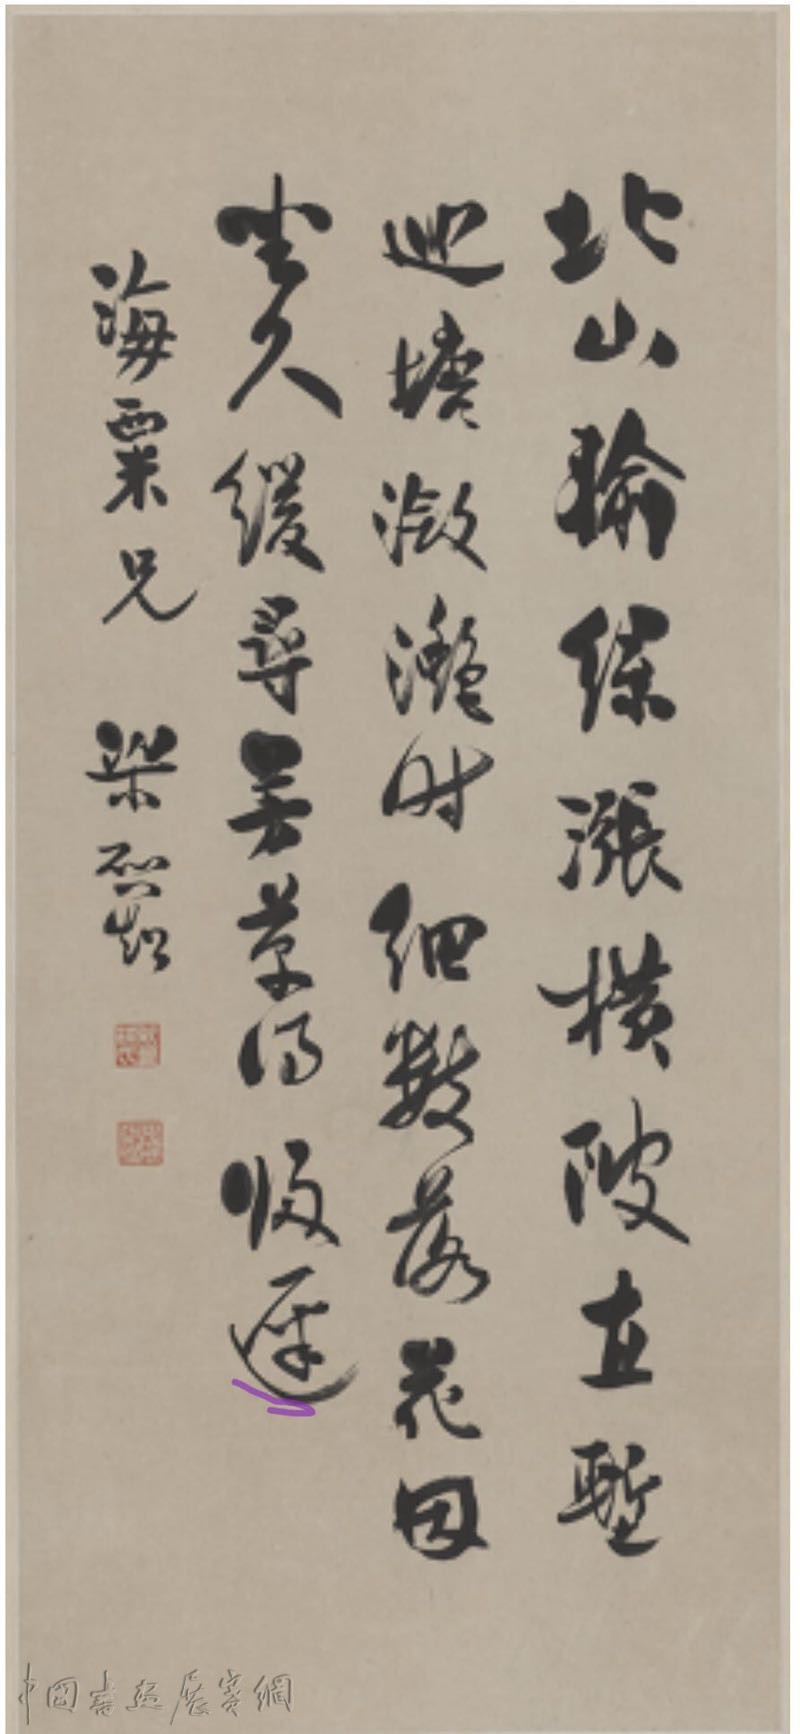 北山輸綠漲橫陂直塹
迴塘瀲灩時細數落花因
坐久緩尋芳草得歸遲
海粟兄 梁啟超
中国書画展賽網